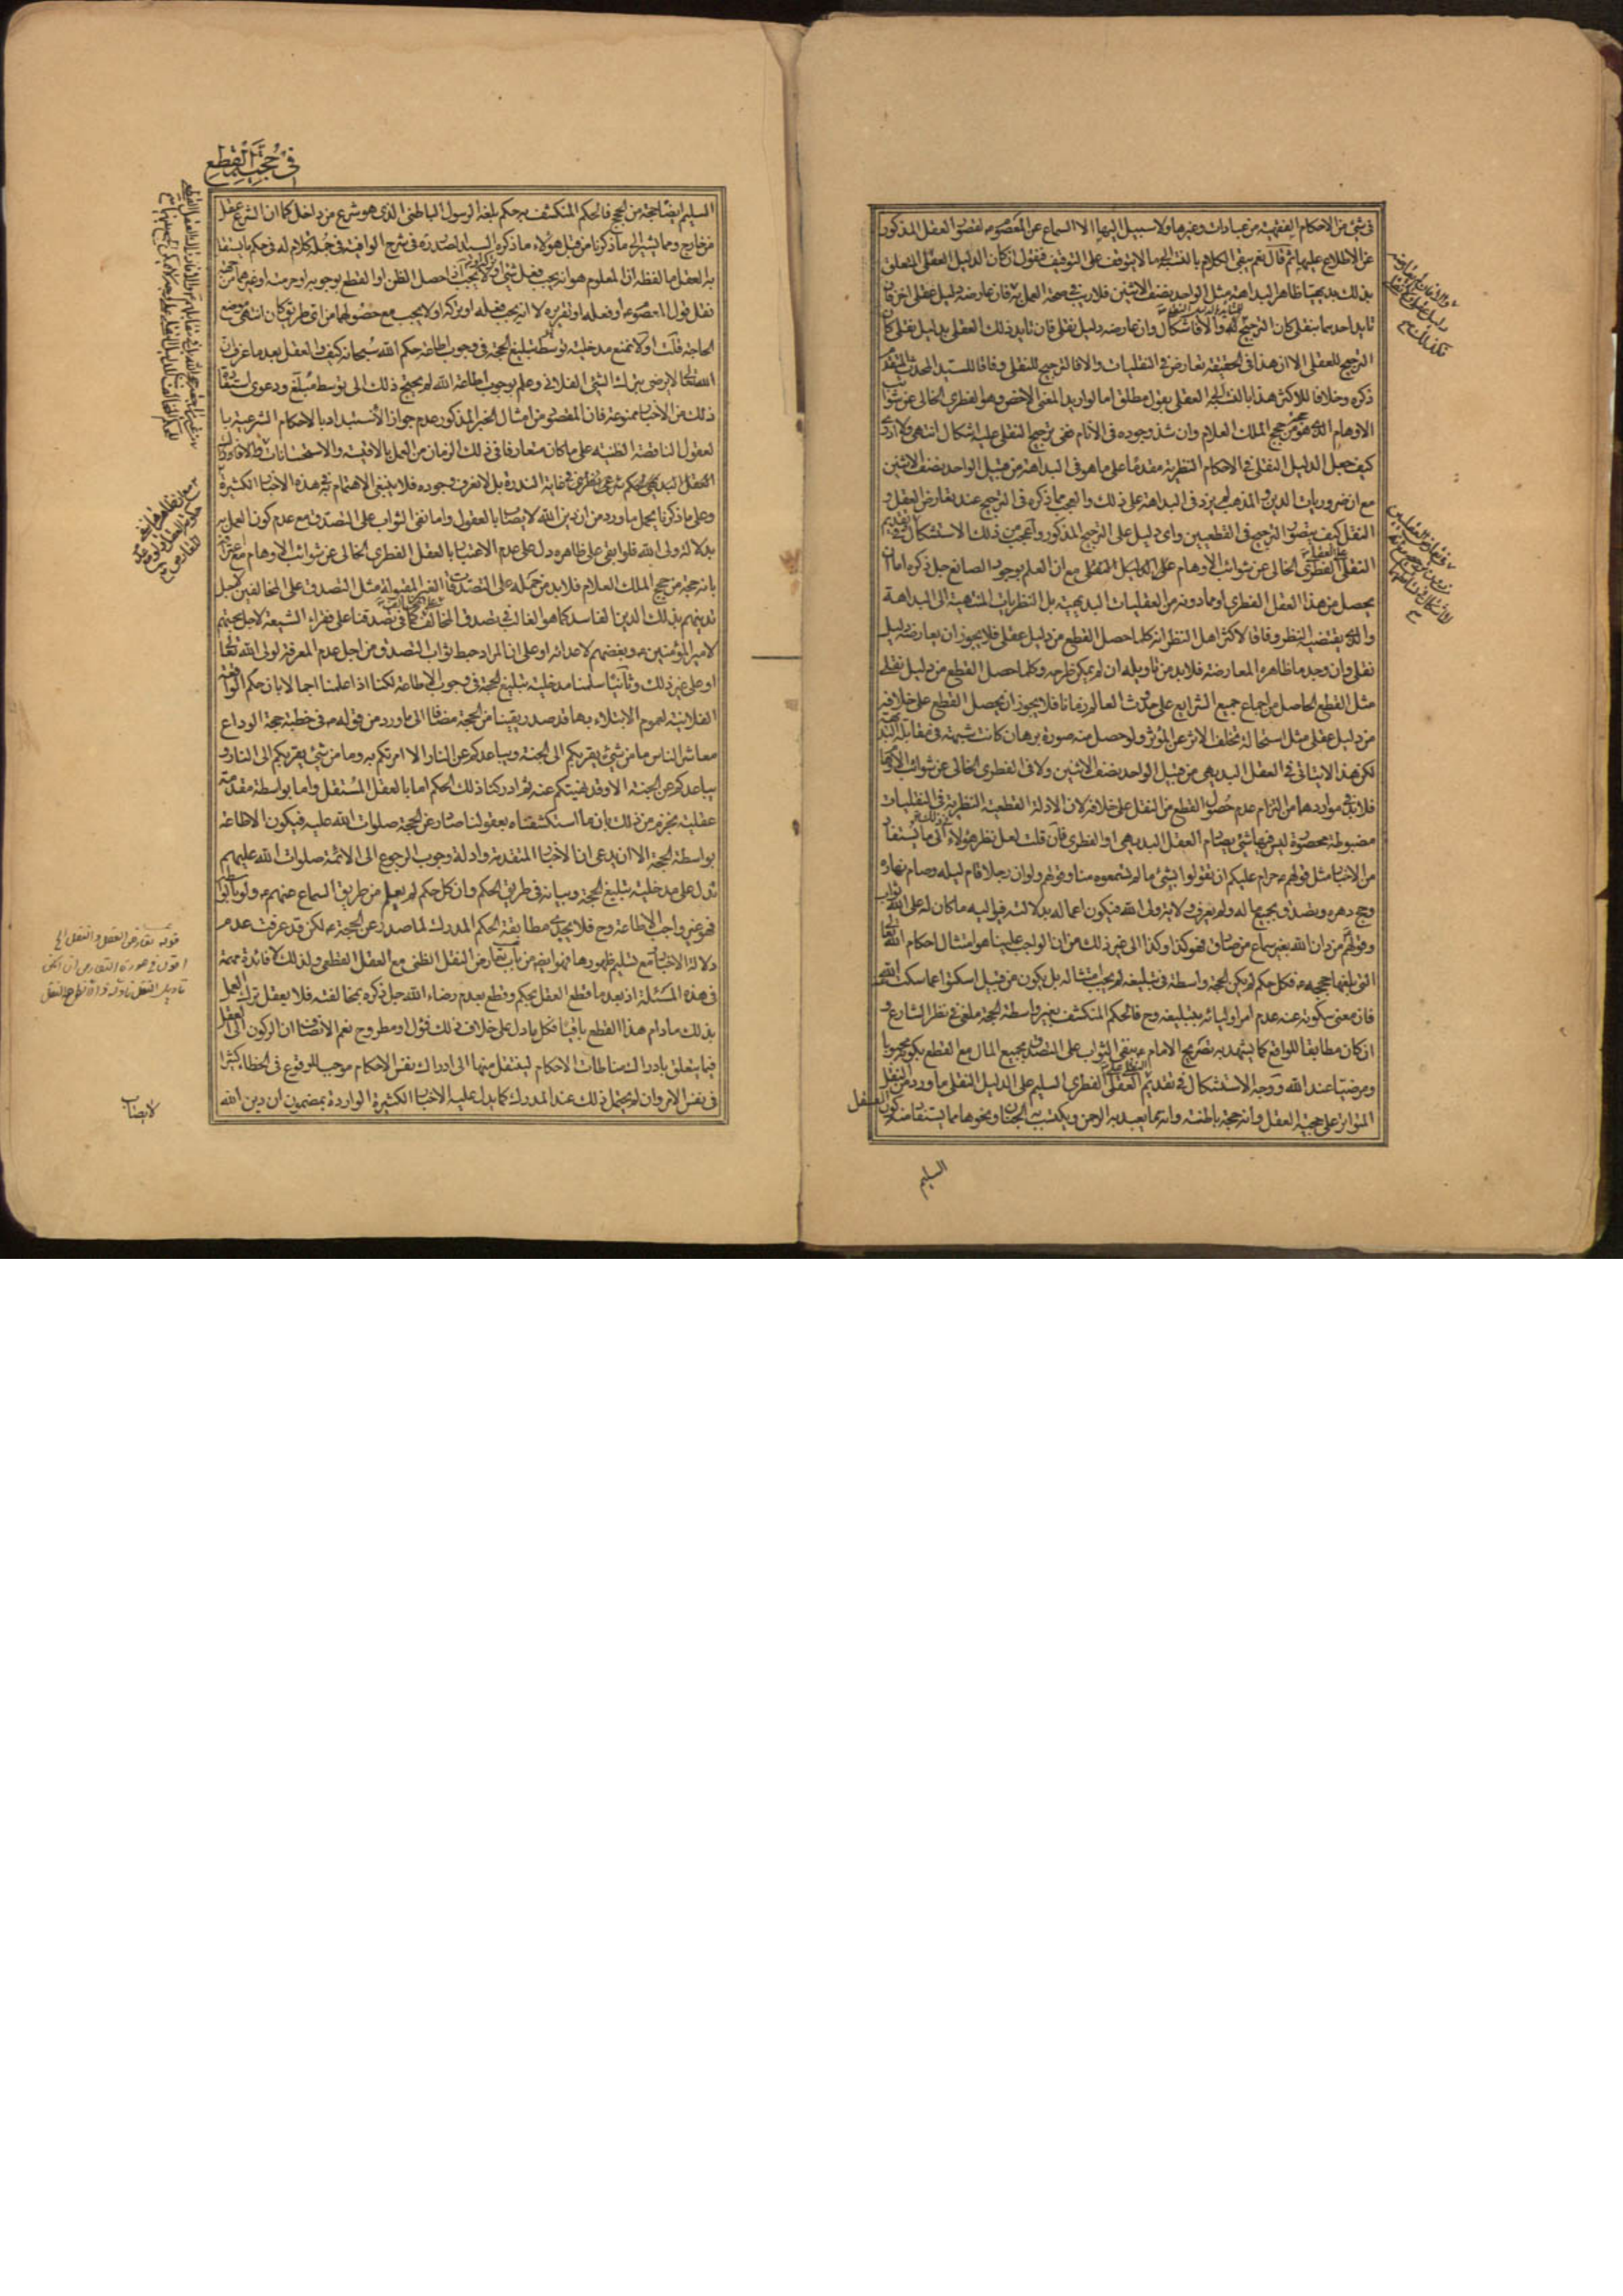 في شيء من الاحكام الفقهية من عبادات وغيرها ولا سبيل اليها الا السماع عن المعصوم لقصور العقل المذكور
عن الاطلاع عليها ثم قال نعم يبقى الكلام بالنسبة الى ما لا يتوقف على التوقيف فنقول ان كان الدليل العقلي المتعلق
بذلك بديهيا ظاهر البداهة مثل الواحد نصف الاثنين فلا ريب في صحة العمل به فان عارضه دليل عقلي اخر فان
تايد احدهما بنقلي كان الترجيح له والا فاشكال وان عارضه دليل نقلي فان تايد ذلك العقلي بدليل نقلي كان
الترجيح للعقلي الا ان هذا في الحقيقة تعارض في النقليات والا فالترجيح للنقلي وفاقا للسيد المحدث المتقدم
ذكره وخلافا للاكثر هذا بالنسبة الى العقلي بقول مطلق اما لو اريد المعنى الاخص وهو الفطري الخالي عن شوائب
الاوهام الذي هو من حجج الملك العلام وان شذ وجوده في الانام ففي ترجيح النقلي عليه اشكال انتهى ولا ادري
كيف جعل الدليل النقلي في الاحكام النظرية مقدما على ما هو في البداهة من قبيل الواحد نصف الاثنين
مع ان ضروريات الدين والمذهب لم يزد في البداهة على ذلك والعجب مما ذكره في الترجيح عند تعارض العقل و
النقل كيف يتصور الترجيح في القطعيين واي دليل على الترجيح المذكور واعجب من ذلك الاستشكال في تقديم
النقلي على العقلي الفطري الخالي عن شوائب الاوهام مع ان العلم بوجود الصانع جل ذكره اما ان
يحصل من هذا العقل الفطري او مما دونه من العقليات البديهية بل النظريات المنتهية الى البداهة
والذي يقتضيه النظر وفاقا لاكثر اهل النظر انه كلما حصل القطع من دليل عقلي فلا يجوز ان يعارضه دليل
نقلي وان وجد ما ظاهره المعارضة فلا بد من تاويله ان لم يمكن طرحه وكلما حصل القطع من دليل نقلي
مثل القطع الحاصل من اجماع جميع الشرايع على حدوث العالم زمانا فلا يجوز ان يحصل القطع على خلافه
من دليل عقلي مثل استحالة تخلف الاثر عن المؤثر ولو حصل منه صورة برهان كانت شبهة في مقابلة البديهة
لكن هذا لا يتاتى في العقل البديهي من قبيل الواحد نصف الاثنين ولا في الفطري الخالي عن شوائب الاوهام
فلا بد في مواردهما من التزام عدم حصول القطع من النقل على خلافه لان الادلة القطعية النظرية في النقليات
مضبوطة محصورة ليس فيها شيء يصادم العقل البديهي او الفطري فان قلت لعل نظر هؤلاء في ذلك الى ما يستفاد
من الاخبار مثل قولهم ع حرام عليكم ان تقولوا بشيء ما لم تسمعوه منا وقولهم ولو ان رجلا قام ليله وصام نهاره
وحج دهره وتصدق بجميع ماله ولم يعرف ولاية ولي الله فيكون اعماله بدلالته فيواليه ما كان له على الله ثواب
وقولهم من دان الله بغير سماع من صادق فهو كذا وكذا الى غير ذلك من ان الواجب علينا هو امتثال احكام الله تعالى
التي بلغها حججه ع فكل حكم لم يكن الحجة واسطة في تبليغه لم يجب امتثاله بل يكون من قبيل اسكتوا عما سكت الله عنه
فان معنى سكوته عنه عدم امر اوليائه بتبليغه وح فالحكم المنكشف بغير واسطة الحجة ملغى في نظر الشارع و
ان كان مطابقا للواقع كما يشهد به تصريح الامام ع بنفي الثواب على التصدق بجميع المال مع القطع بكونه محبوبا
ومرضيا عند الله ووجه الاستشكال في تقديم النقلي على العقلي الفطري السليم ما ورد من النقل
المتواتر على حجية العقل وانه حجة باطنة وانه مما يعبد به الرحمن ويكتسب به الجنان ونحوها مما يستفاد منه كون العقل
السليم
في حجية القطع
السليم ايضا حجة من الحجج فالحكم المنكشف به حكم بلغه الرسول الباطني الذي هو شرع من داخل كما ان الشرع عقل
من خارج ومما يشير الى ما ذكرنا من قبل هؤلاء ما ذكره السيد الصدر ره في شرح الوافية في جملة كلام له في حكم ما يستقل
به العقل ما لفظه ان المعلوم هو انه يجب فعل شيء او تركه او لا يجب اذا حصل الظن او القطع بوجوبه او حرمته او غيرهما من جهة
نقل قول المعصوم او فعله او تقريره لا انه يجب فعله او تركه او لا يجب مع حصولهما من اي طريق كان انتهى موضع
الحاجة قلت اولا نمنع مدخلية توسط تبليغ الحجة في وجوب اطاعة حكم الله سبحانه كيف والعقل بعد ما عرف ان
الله تعالى لا يرضى بترك الشيء الفلاني وعلم بوجوب اطاعة الله لم يحتج ذلك الى توسط مبلغ ودعوى استفادة
ذلك من الاخبار ممنوعة فان المقصود من امثال الخبر المذكور عدم جواز الاستبداد بالاحكام الشرعية با
لعقول الناقصة الظنية على ما كان متعارفا في ذلك الزمان من العمل بالاقيسة والاستحسانات
وعلى ما ذكرنا يحمل ما ورد من ان دين الله لا يصاب بالعقول واما نفي الثواب على التصدق مع عدم كون العمل به
بدلالة ولي الله فلو ابقي على ظاهره دل على عدم الاعتبار بالعقل الفطري الخالي عن شوائب الاوهام مع اعترافه
بانه حجة من حجج الملك العلام فلا بد من حمله على التصدقات الغير المقبولة مثل التصدق على المخالفين لاجل
تدينهم بذلك الدين الفاسد كما هو الغالب في تصدق المخالف على المخالف كما في تصدقنا على فقراء الشيعة لاجل محبتهم
لامير المؤمنين ع وبغضهم لاعدائه او على ان المراد حبط ثواب التصدق من اجل عدم المعرفة لولي الله تعالى
او على غير ذلك وثانيا سلمنا مدخلية تبليغ الحجة في وجوب الاطاعة لكنا اذا علمنا اجمالا بان حكم الواقعة
الفلانية لعموم الابتلاء بها قد صدر يقينا من الحجة مضافا الى ما ورد من قوله ص في خطبة حجة الوداع
معاشر الناس ما من شيء يقربكم الى الجنة ويباعدكم عن النار الا امرتكم به وما من شيء يقربكم الى النار و
يباعدكم عن الجنة الا وقد نهيتكم عنه ثم ادركنا ذلك الحكم اما بالعقل المستقل واما بواسطة مقدمة
عقلية نجزم من ذلك بان ما استكشفناه بعقولنا صادر عن الحجة صلوات الله عليه فيكون الاطاعة
بواسطة الحجة الا ان يدعى ان الاخبار المتقدمة وادلة وجوب الرجوع الى الائمة صلوات الله عليهم
تدل على مدخلية تبليغ الحجة وبيانه في طريق الحكم وان كل حكم لم يعلم من طريق السماع عنهم ع ولو بالواسطة
فهو غير واجب الاطاعة وح فلا يجدي مطابقة الحكم المدرك لما صدر عن الحجة ع لكن قد عرفت عدم
دلالة الاخبار ومع تسليم ظهورها فهو ايضا من باب تعارض النقل الظني مع العقل القطعي ولذلك لا فائدة مهمة
في هذه المسئلة اذ بعد ما قطع العقل بحكم وقطع بعدم رضاء الله جل ذكره بمخالفته فلا يعقل ترك العمل
بذلك ما دام هذا القطع باقيا فكل ما دل على خلاف ذلك فمؤول او مطروح نعم الانصاف ان الركون الى العقل
فيما يتعلق بادراك مناطات الاحكام لينتقل منها الى ادراك نفس الاحكام موجب للوقوع في الخطاء كثيرا
في نفس الامر وان لم يحتمل ذلك عند المدرك كما يدل عليه الاخبار الكثيرة الواردة بمضمون ان دين الله
لا يصاب
قوله تعارض العقل والنقل الخ
اقول في صورة التعارض ان امكن